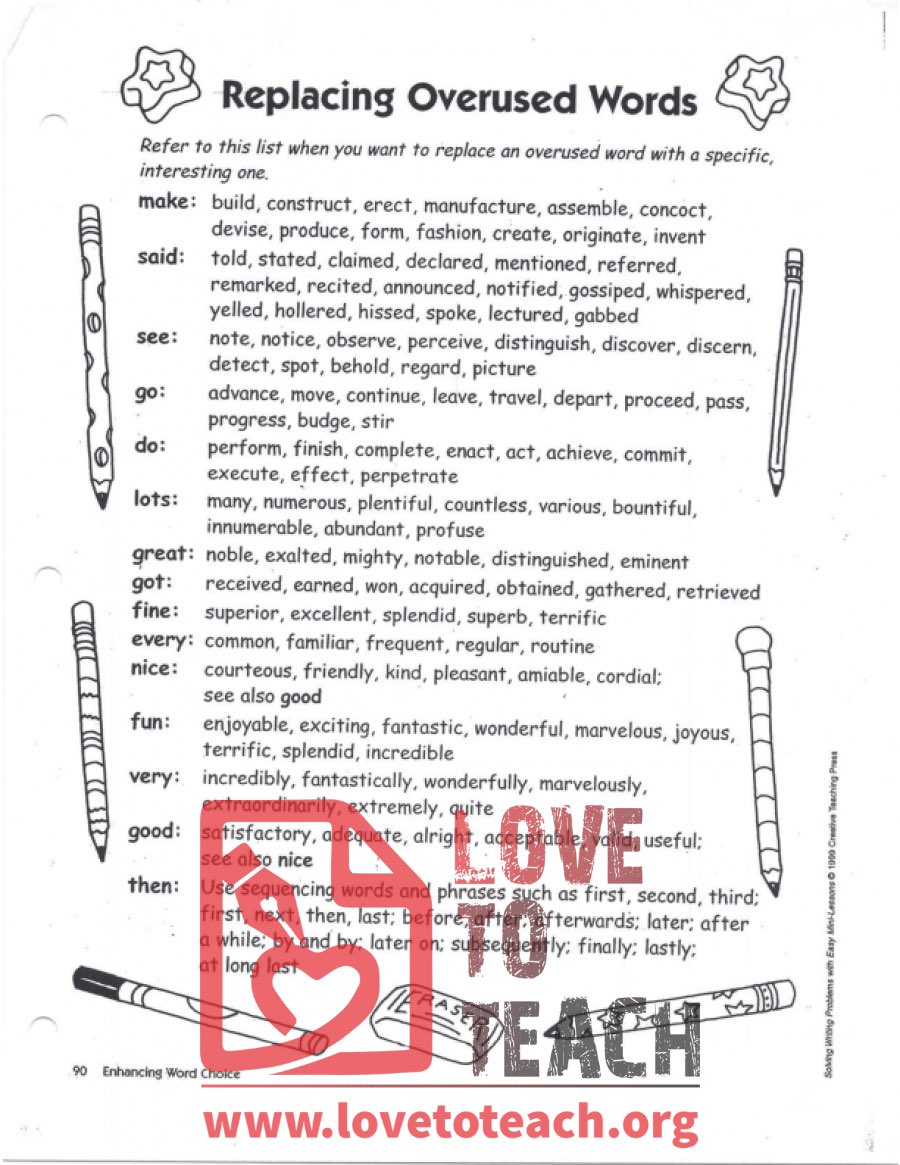 Replacing Overused Words
Refer to this list when you want to replace an overused word with a specific,
interesting one.
make: build, construct, erect, manufacture, assemble, concoct,
devise, produce, form, fashion, create, originate, invent
said: told, stated, claimed, declared, mentioned, referred,
remarked, recited, announced, notified, gossiped, whispered,
yelled, hollered, hissed, spoke, lectured, gabbed
see: note, notice, observe, perceive, distinguish, discover, discern,
detect, spot, behold, regard, picture
go: advance, move, continue, leave, travel, depart, proceed, pass,
progress, budge, stir
do: perform, finish, complete, enact, act, achieve, commit,
execute, effect, perpetrate
lots: many, numerous, plentiful, countless, various, bountiful,
innumerable, abundant, profuse
great: noble, exalted, mighty, notable, distinguished, eminent
got: received, earned, won, acquired, obtained, gathered, retrieved
fine: superior, excellent, splendid, superb, terrific
every: common, familiar, frequent, regular, routine
nice: courteous, friendly, kind, pleasant, amiable, cordial;
see also good
fun: enjoyable, exciting, fantastic, wonderful, marvelous, joyous,
terrific, splendid, incredible
very: incredibly, fantastically, wonderfully, marvelously,
extraordinarily, extremely, quite
good: satisfactory, adequate, alright, acceptable, valid, useful;
see also nice
then: Use sequencing words and phrases such as first, second, third;
first, next, then, last; before, after, afterwards; later; after
a while; by and by; later on; subsequently; finally; lastly;
at long last
ERASER
90 Enhancing Word Choice
Solving Writing Problems with Easy Mini-Lessons © 1999 Creative Teaching Press
LOVE
TO
TEACH
www.lovetoteach.org